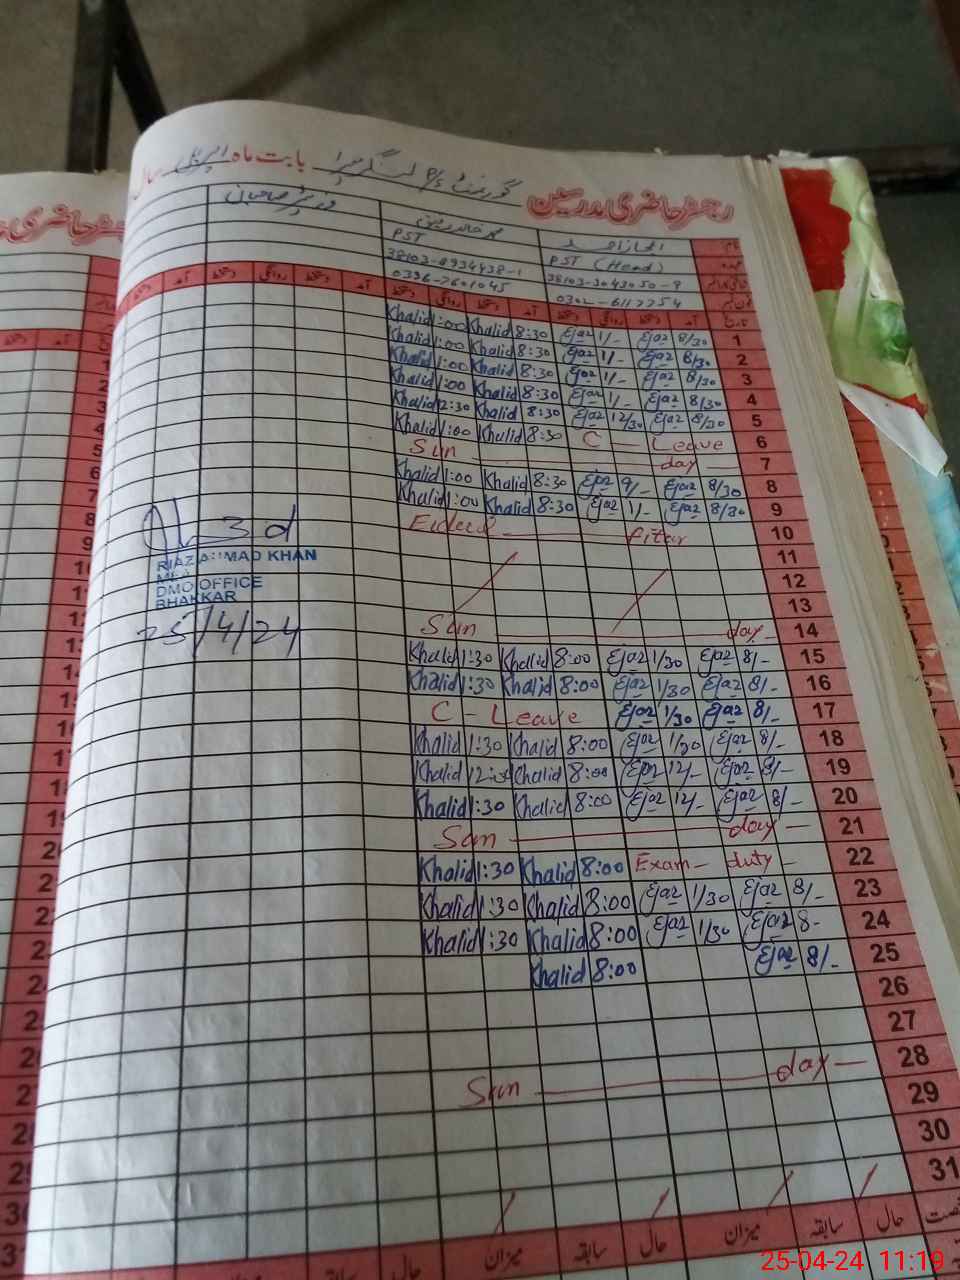 رجسٹر حاضری مدرسین گورنمنٹ P/S بابت ماہ اپریل سال
نام اعجاز احمد محمد خالد وزٹر صاحبان
عہدہ PST (Head) PST
38103-3043050-9 38103-8934438-1
0302-6117754 0336-7601045
تاریخ آمد دستخط روانگی دستخط آمد دستخط روانگی دستخط آمد دستخط روانگی دستخط آمد
Khalid 1:00 Khalid 8:30 Ejaz 1/- Ejaz 8/30 1
Khalid 1:00 Khalid 8:30 Ejaz 1/- Ejaz 8/30 2
Khalid 1:00 Khalid 8:30 Ejaz 1/- Ejaz 8/30 3
Khalid 1:00 Khalid 8:30 Ejaz 1/- Ejaz 8/30 4
Khalid 12:30 Khalid 8:30 Ejaz 12/30 Ejaz 8/30 5
Khalid 1:00 Khalid 8:30 C - Leave 6
Sun day 7
Khalid 1:00 Khalid 8:30 Ejaz Ejaz 8/30 8
Khalid 1:00 Khalid 8:30 Ejaz 1/- Ejaz 8/30 9
Eidul fitar 10
11
12
13
Sun day 14
Khalid 1:30 Khalid 8:00 Ejaz 1/30 Ejaz 8/- 15
Khalid 1:30 Khalid 8:00 Ejaz 1/30 Ejaz 8/- 16
C - Leave Ejaz 1/30 Ejaz 8/- 17
Khalid 1:30 Khalid 8:00 Ejaz 1/30 Ejaz 8/- 18
Khalid 12:00 Khalid 8:00 Ejaz 12/- Ejaz 8/- 19
Khalid 1:30 Khalid 8:00 Ejaz 12/- Ejaz 8/- 20
Sun day 21
Khalid 1:30 Khalid 8:00 Exam - duty - 22
Khalid 1:30 Khalid 8:00 Ejaz 1/30 Ejaz 8/- 23
Khalid 1:30 Khalid 8:00 Ejaz 1/30 Ejaz 8- 24
Khalid 8:00 Ejaz 8/- 25
26
27
Sun day 28
29
30
31
حال سابقہ میزان حال سابقہ میزان حال سابقہ
RIAZ AHMAD KHAN
MEA
DMO OFFICE
BHAKKAR
25/4/24
25-04-24 11:19